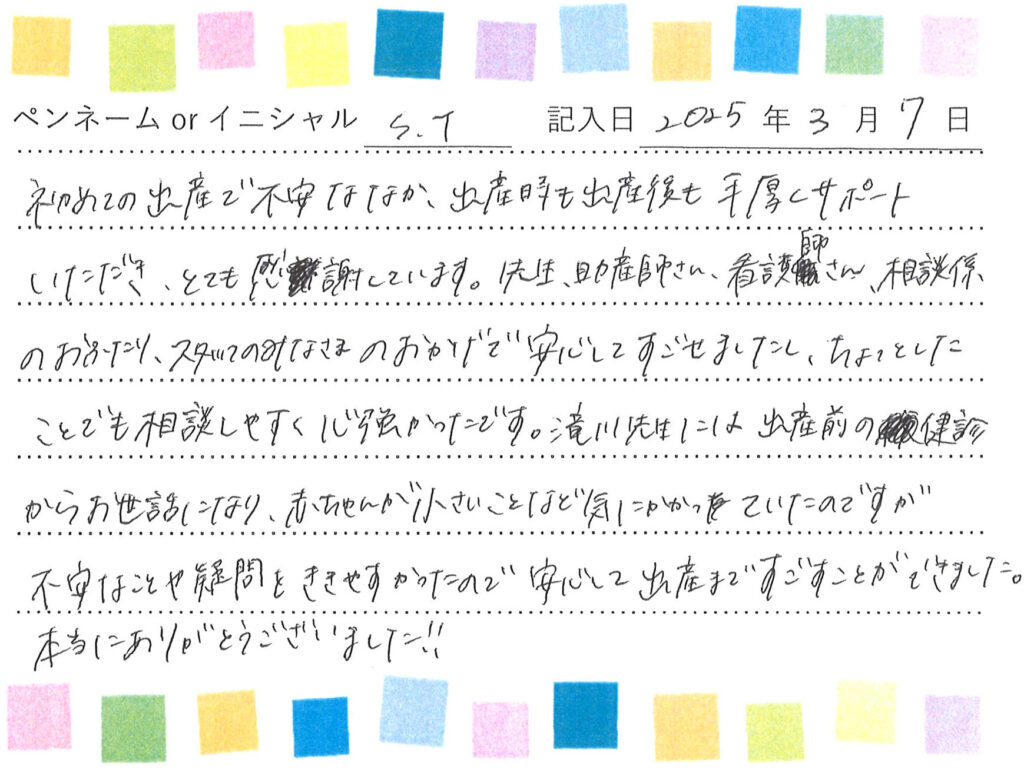 ペンネーム or イニシャル S.T 記入日 2025 年 3 月 7 日
初めての出産で不安ななか、出産時も出産後も手厚くサポート
いただき、とても感謝しています。先生、助産師さん、看護師さん、相談係
のおふたり、スタッフのみなさまのおかげで安心してすごせましたし、ちょっとした
ことでも相談しやすく心強かったです。滝川先生には出産前の健診
からお世話になり、赤ちゃんが小さいことなど気にかかっていたのですが
不安なことや疑問をききやすかったので安心して出産まですごすことができました。
本当にありがとうございました!!